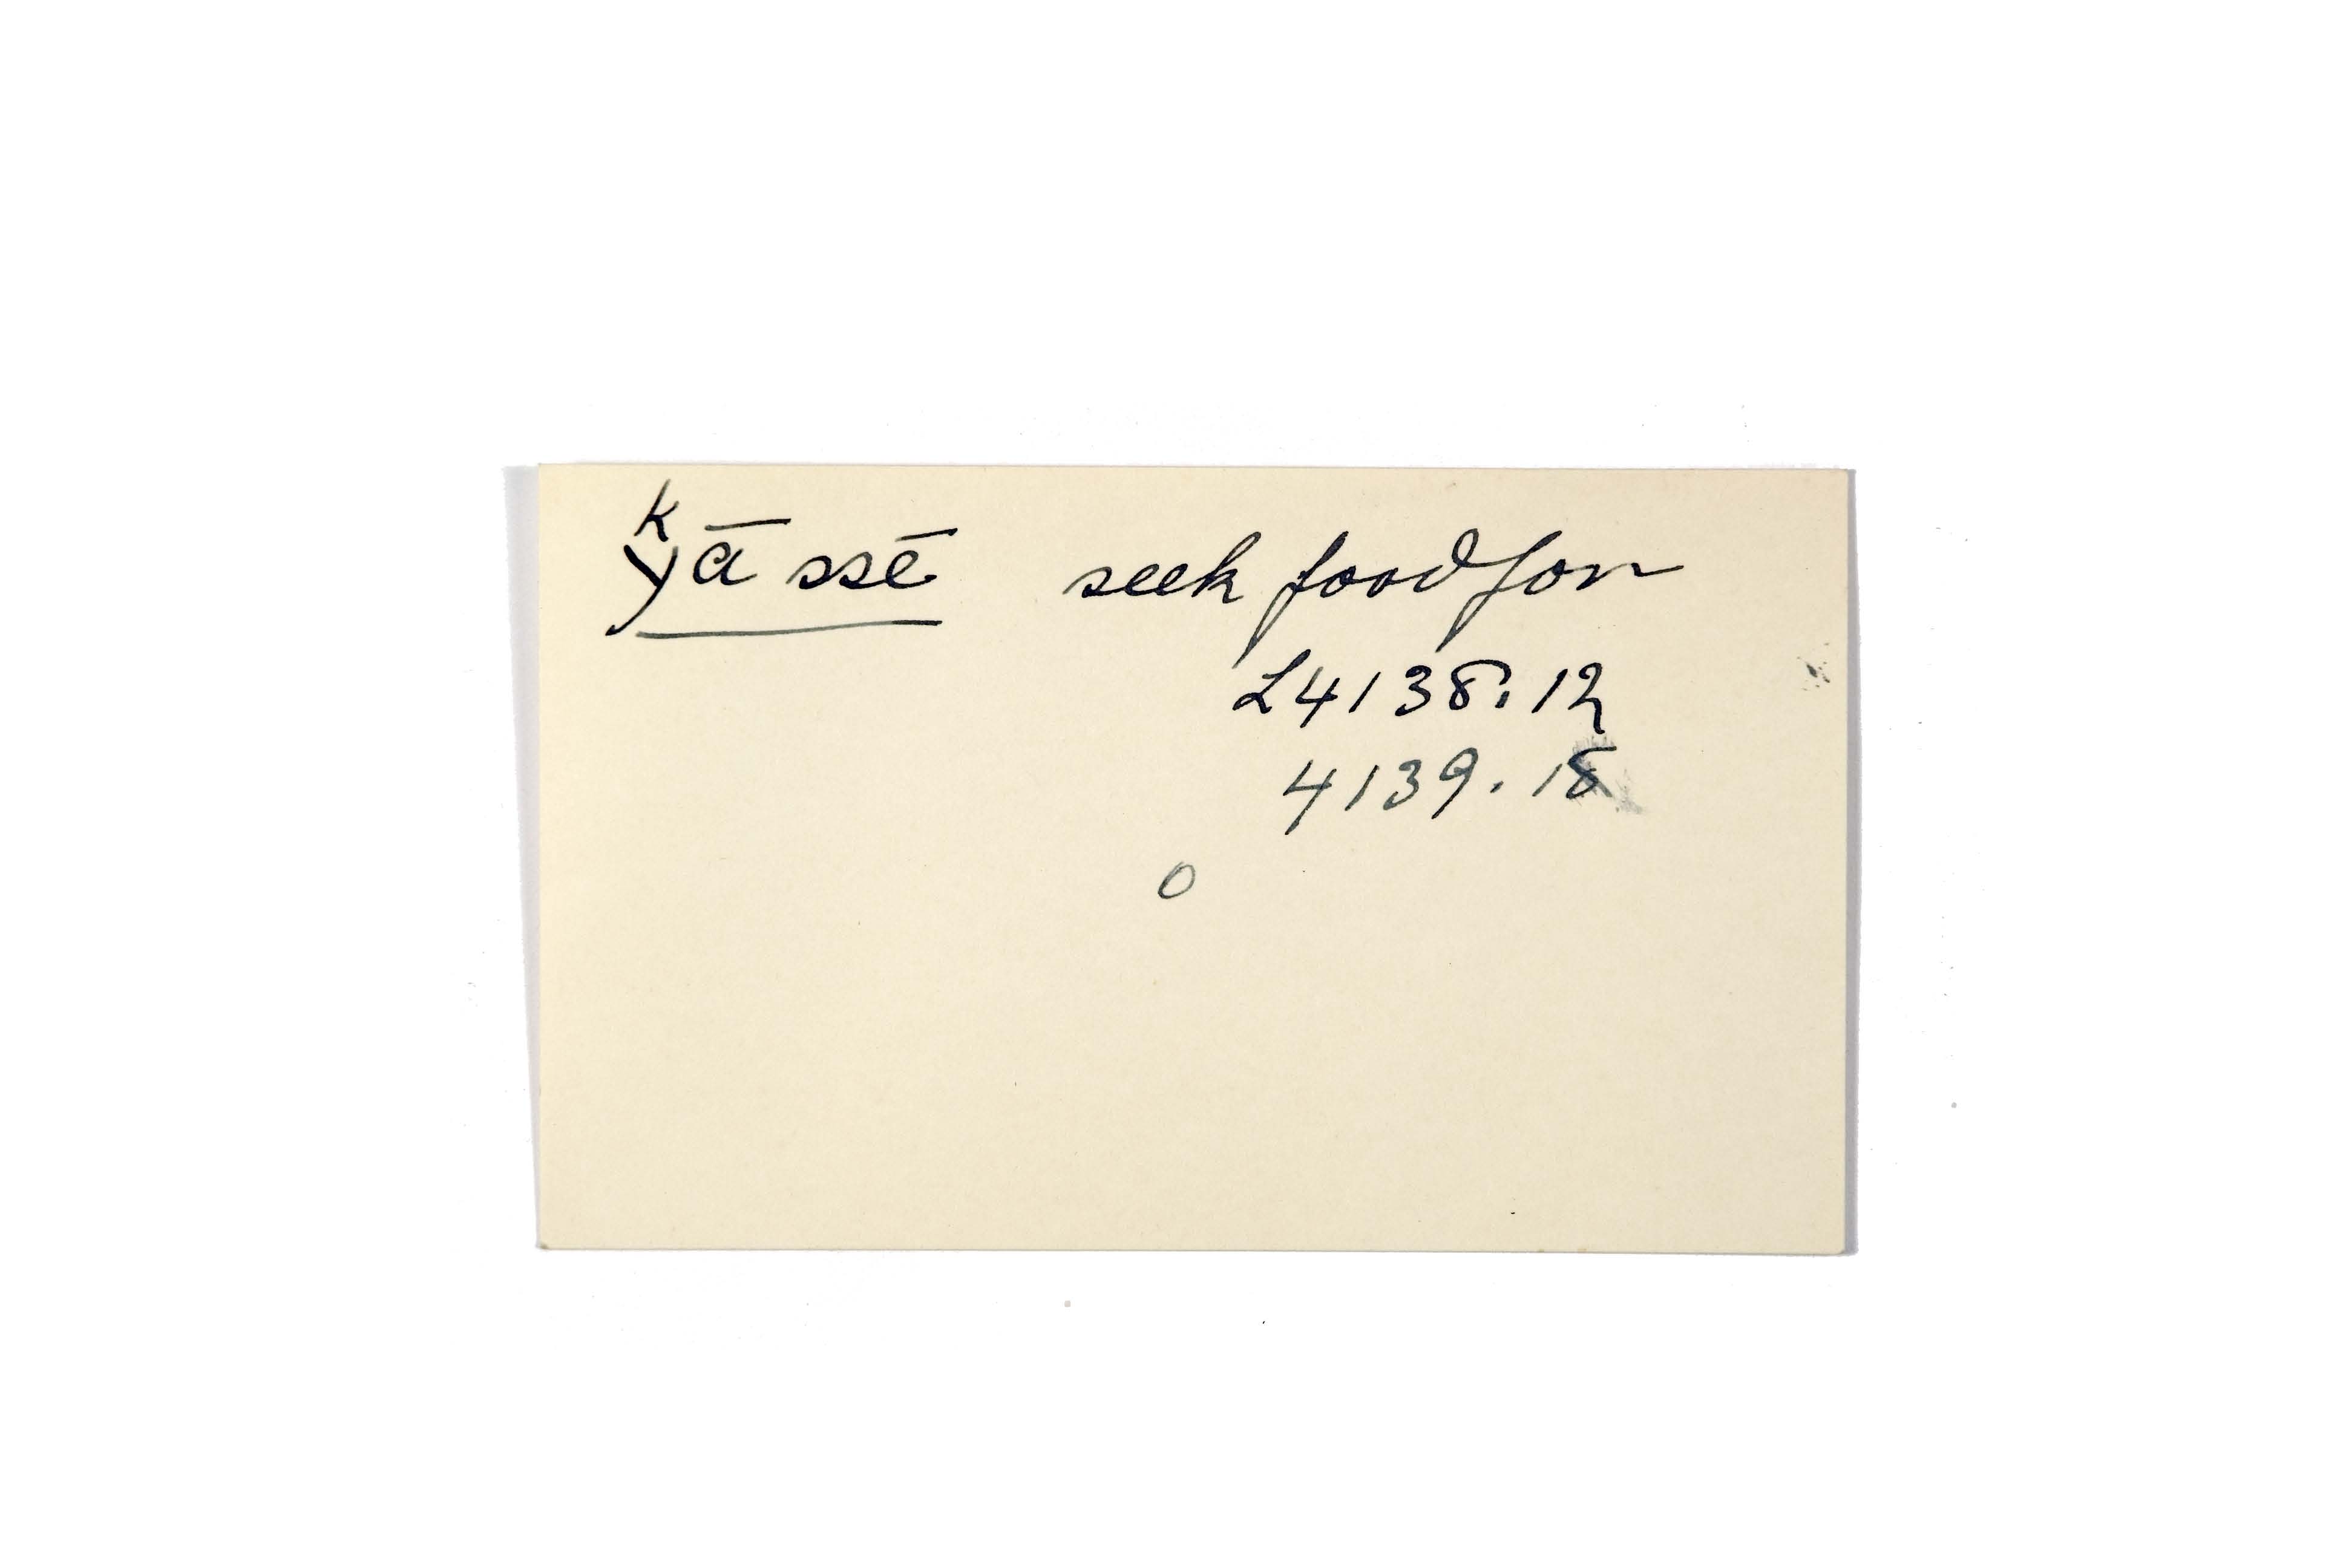 kyā ssē seek food for
L4138.12
4139.18
0